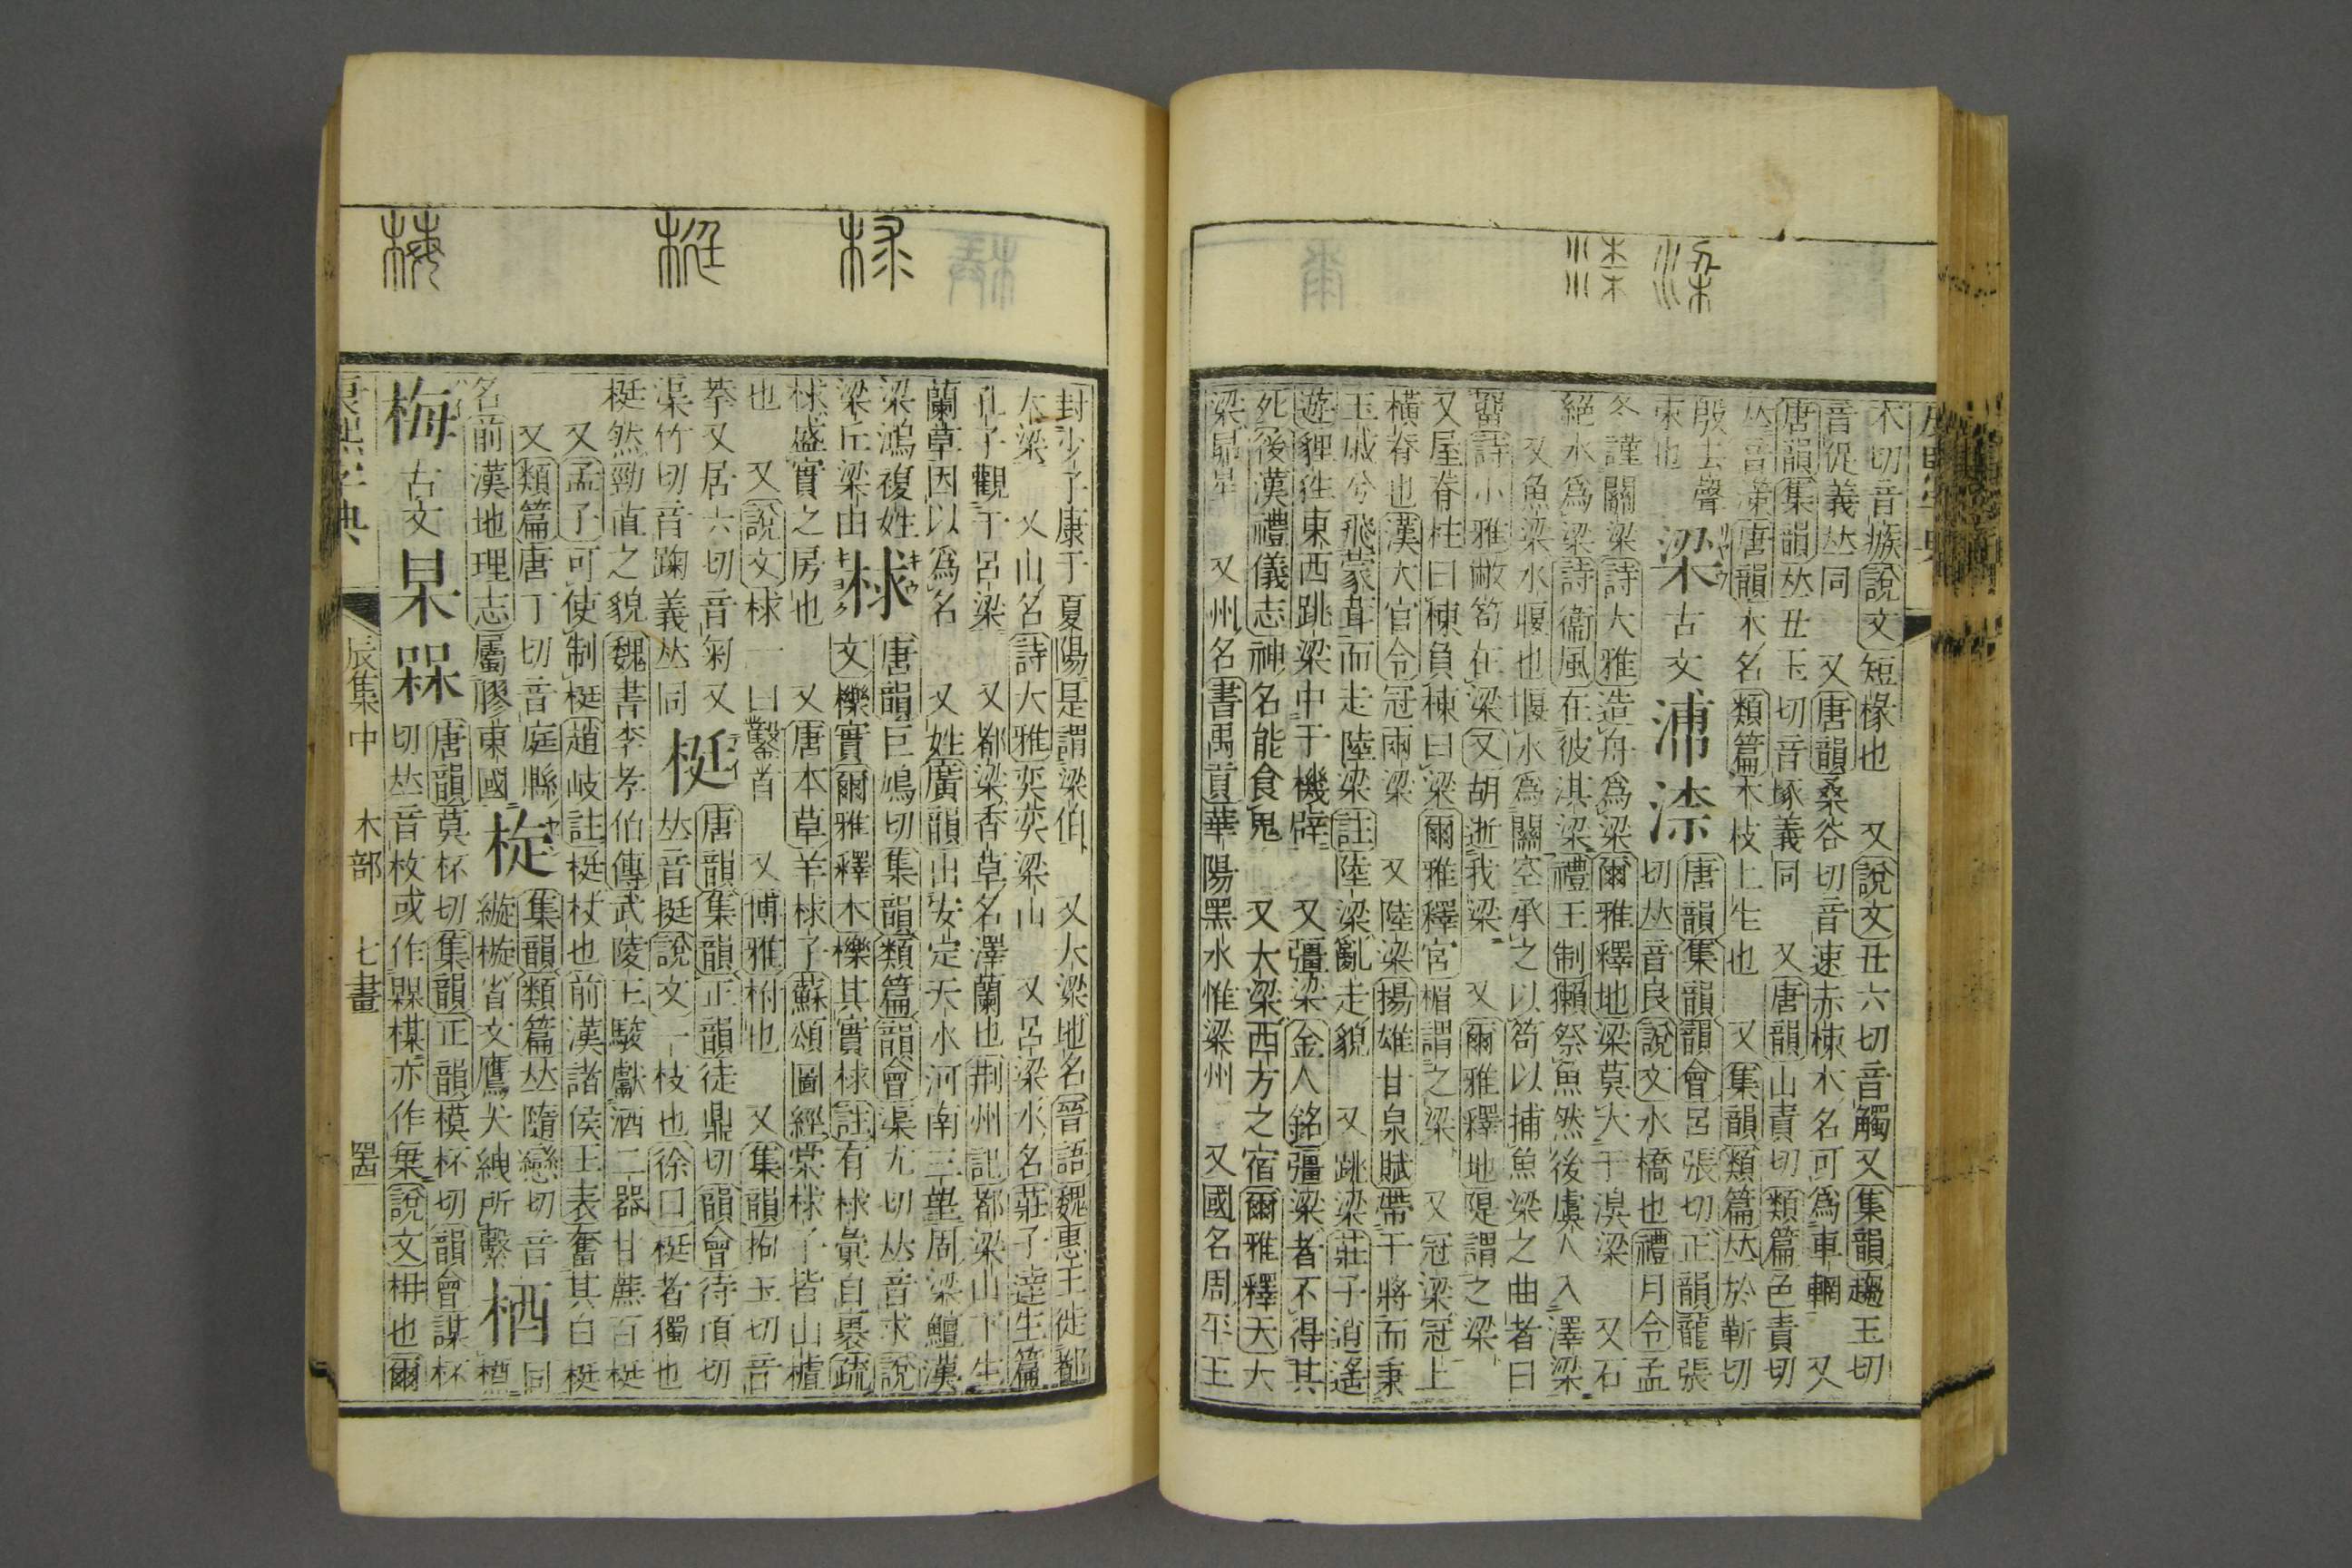 木切音瘯說文短椽也 又說文丑六切音觸又集韻趨玉切
音促義𠀤同 又唐韻桑谷切音速赤棟木名可爲車輞 又
唐韻集韻𠀤丑玉切音瘃義同 又唐韻山責切類篇色責切
𠀤音唐韻木名類篇木枝上生也 又集韻類篇𠀤於靳切
殷去聲
束也
梁 古文
唐韻集韻韻會呂張切正韻龍張
切𠀤音良說文水橋也禮月令孟
冬謹關梁詩大雅造舟爲梁爾雅釋地梁莫大于湨梁 又石
絕水爲梁詩衞風在彼淇梁禮王制獺祭魚然後虞人入澤梁
又魚梁水堰也堰水爲關空承之以笱以捕魚梁之曲者曰
罶詩小雅敝笱在梁又胡逝我梁 又爾雅釋地隄謂之梁
又屋脊柱曰棟負棟曰梁爾雅釋宮楣謂之梁 又冠梁冠上
橫脊也漢大官令冠兩梁 又陸梁揚雄甘泉賦帶干將而秉
玉戚兮飛蒙茸而走陸梁註陸梁亂走貌 又跳梁莊子逍遙
遊狸狌東西跳梁中于機辟 又彊梁金人銘彊梁者不得其
死後漢禮儀志神名能食鬼 又大梁西方之宿爾雅釋天大
梁昴星 又州名書禹貢華陽黑水惟梁州 又國名周平王
封少子康于夏陽是謂梁伯 又大梁地名晉語魏惠王徙都
大梁 又山名詩大雅奕奕梁山 又呂梁水名莊子達生篇
孔子觀于呂梁 又都梁香草名澤蘭也荆州記都梁山下生
蘭草因以爲名 又姓廣韻出安定天水河南三望周梁鱣漢
梁鴻複姓
梁丘梁由
梂 唐韻巨鳩切集韻類篇韻會渠尤切𠀤音求說
文櫟實爾雅釋木櫟其實梂註有梂彙自裹疏
梂盛實之房也 又唐本草羊梂子蘇頌圖經棠梂子皆山樝
也 又說文梂一曰鑿首 又博雅柎也 又集韻拘玉切音
䓟又居六切音菊又
渠竹切音踘義𠀤同
梃 唐韻集韻正韻徒鼎切韻會待頂切
𠀤音挺說文一枝也徐曰梃者獨也
梃然勁直之貌魏書李孝伯傳武陵王駿獻酒二器甘蔗百梃
又孟子可使制梃趙岐註梃杖也前漢諸侯王表奮其白梃
又類篇唐丁切音庭縣
名前漢地理志屬膠東國
集韻類篇𠀤隨戀切音
縼㯀省文鷹犬紲所繫
梄 同
槱
梅 古文 杲 槑
唐韻莫杯切集韻正韻模杯切韻會謀杯
切𠀤音枚或作楳亦作某說文枏也爾
康熙字典 辰集中 木部 七畫 罢